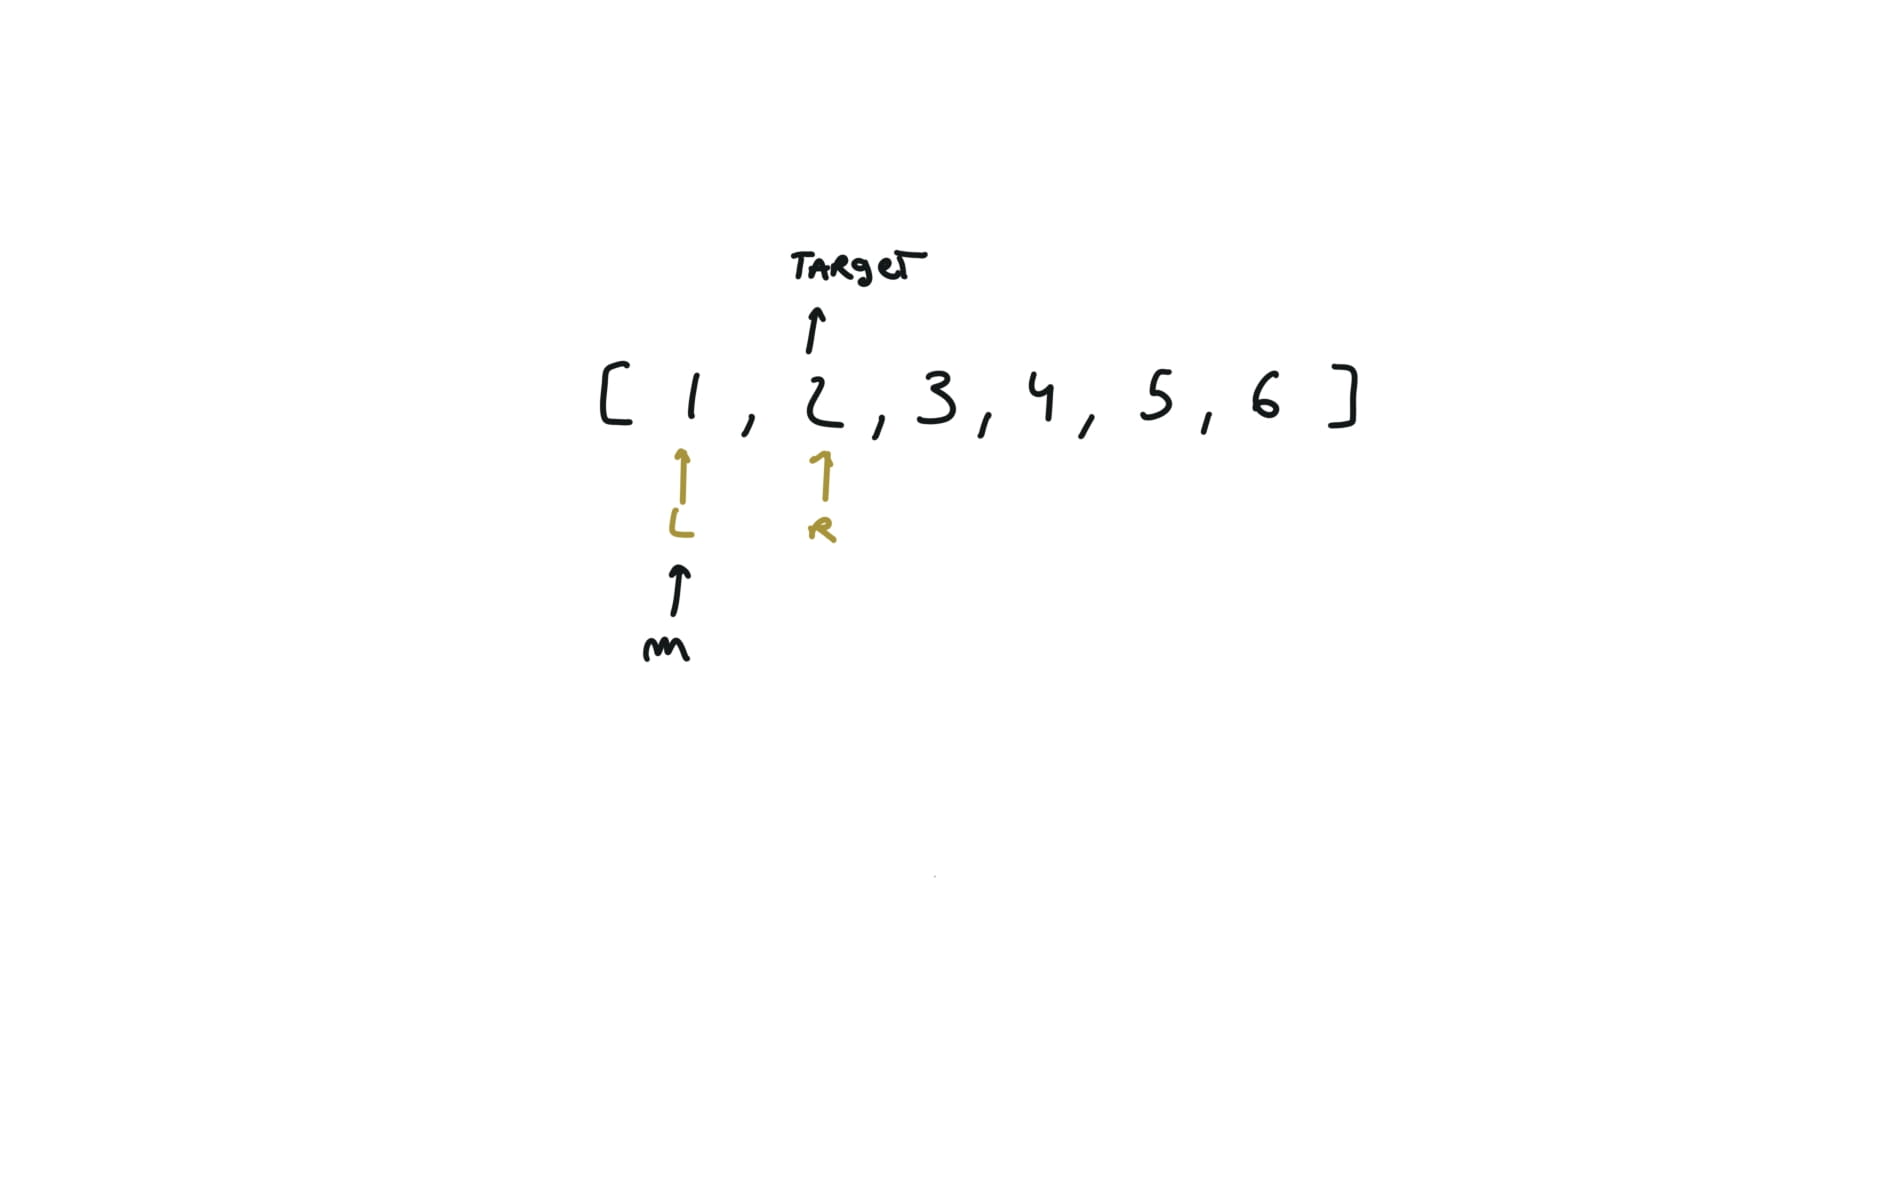 TARgeT
[ 1 , 2 , 3 , 4 , 5 , 6 ]
L R
m